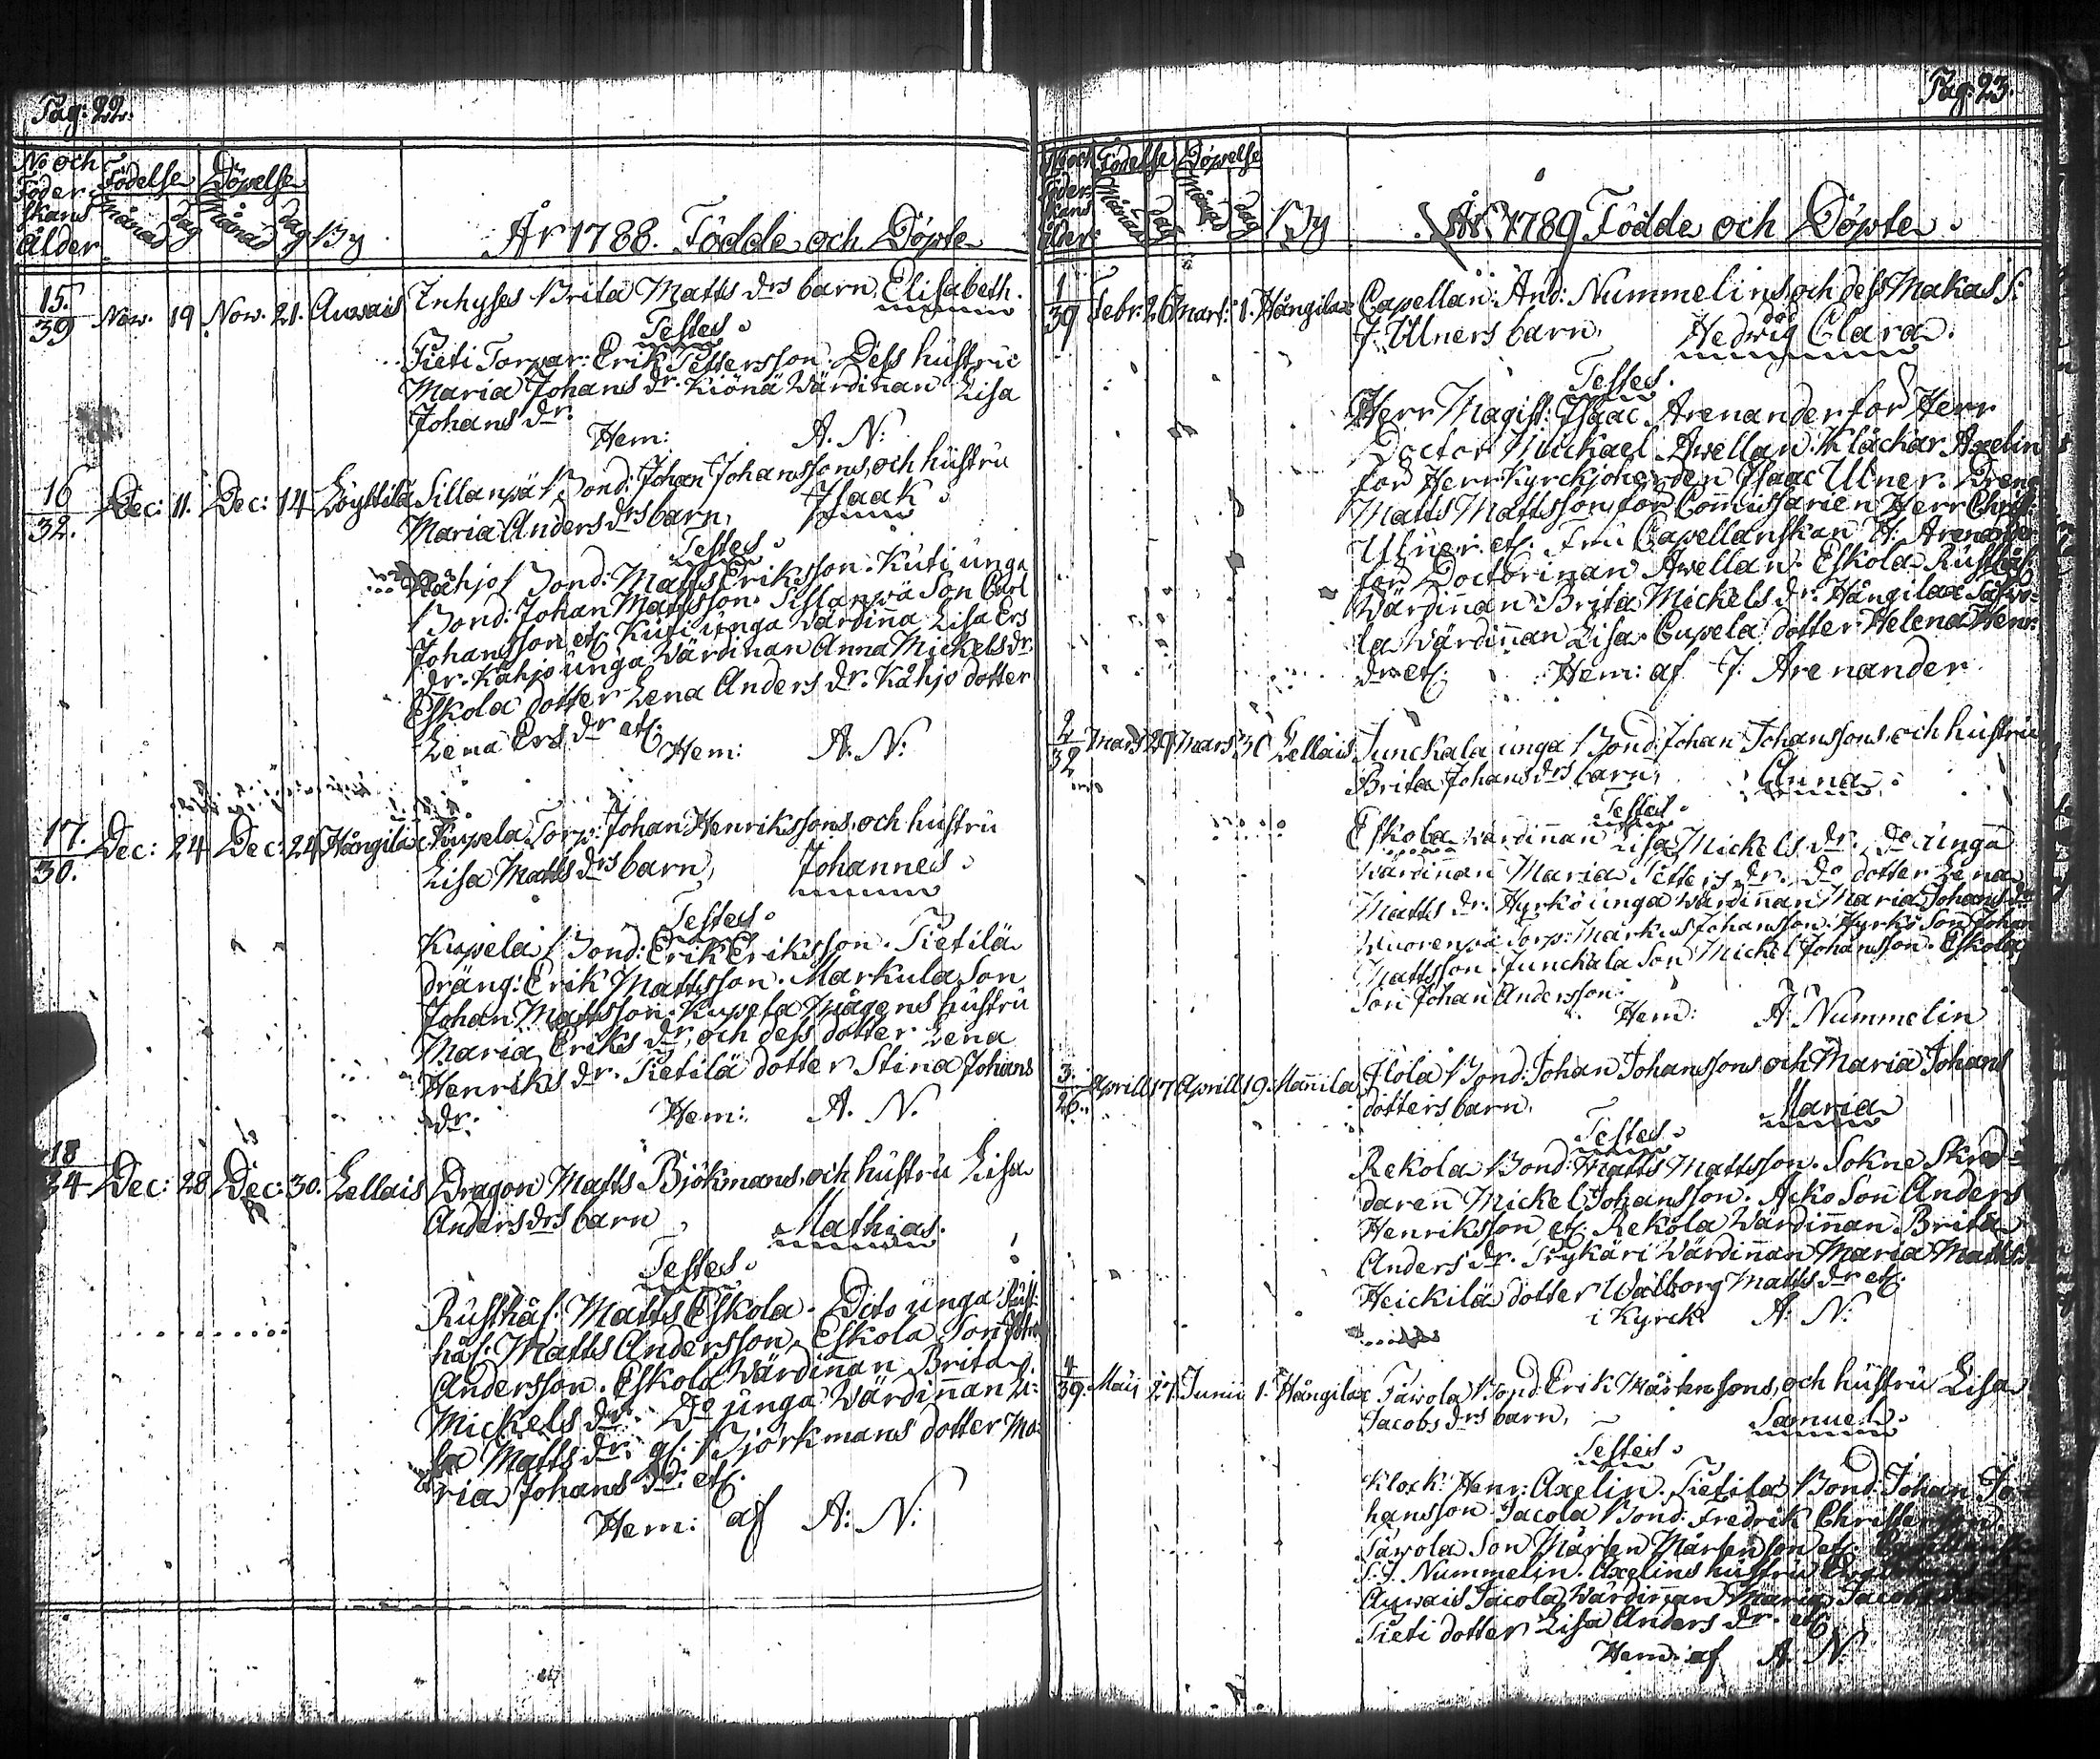 Pag: 22.
No och Föder skans Ålder
Födelse Månad dag
Döpelse Månad dag
By
År 1788. Födde och Döpte
15. 39 Nov. 19 Nov. 21. Auvais Inhyses Brita Matts drs barn, Elisabeth.
Testes.
Pieti Torpar: Erik Pettersson. Dess hustru
Maria Johans dr. Kiönä Wärdinan Lisa
Johans dr.
Hem: A. N:
16 32. Dec: 11. Dec: 14 Löyttilä Sillanpä Bond: Johan Johanssons, och hustru
Maria Anders drs barn, Isaak.
Testes.
Kåhjo Bond: Matts Eriksson. Kuti unga
Bond: Johan Mattsson. Sillanpä Son Carl
Johansson etc. Kuti unga Wärdinna Lisa Ers
dr. Kåhjo unga Wärdinan Anna Mickels dr.
Eskola dotter Lena Anders dr. Kåhjo dotter
Lena Ers dr etc.
Hem: A. N:
17. 30. Dec: 24 Dec: 24 Hångilax Kupela Torp: Johan Henrikssons, och hustru
Lisa Matts drs barn, Johannes.
Testes.
Kupela Bond: Erik Eriksson. Pietilä
dräng: Erik Mattsson. Markula Son
Johan Mattsson. Kupela Mågens hustru
Maria Eriks dr, och dess dotter Lena
Henriks dr. Pietilä dotter Stina Johans
dr. Hem: A. N.
18 34 Dec: 28 Dec: 30. Lellais Dragon Matts Björkmans, och hustru Lisa
Anders drs barn, Mathias.
Testes.
Rusthål: Matts Eskola. Dito unga Rust:
hål: Matts Andersson, Eskola Son Johan
Andersson. Eskola Wärdinan Brita
Mickels dr. Do unga Wärdinnan Li:
sa Matts dr. gl. Björkmans dotter Ma:
ria Johans dr. etc.
Hem: af A: N:
Pag: 23.
No och Föder skans ålder
Födelse Månad dag
Döpelse Månad dag
By
År 1789 Födde och Döpte.
1 39 Febr: 26 Mart: 1. Hångilax Capellan: And: Nummelins, och dess Makas S:
J: Ulners barn, Hedwig Clara.
Testes.
Herr Magist: Isaac Arenander för Herr
Doctor Mickael Awellan. Klåckar Axelin
för Herr Kyrckjoherden Isaac Ulner. Dreng
Matts Mattsson för Commissarien Herr Christ:
Ulner. etc. Fru Capellanskan H: Arenander
för Doctorinan Awellan. Eskola Rusthål:
Wärdinnan Brita Mickels dr. Hångilax Säwo:
la Wärdinnan Lisa. Cupela dotter Helena Henr:
dr. etc. Hem: af J: Arenander
2 32 Mars 29 Mars 30 Lellais Junckala unga Bond: Johan Johanssons, och hustru
Brita Johans drs barn, Anna.
Testes.
Eskola Wärdinnan Lisa Mickels dr. Do unga
Wärdinnan Maria Petters dr. Do dotter Lena
Matts dr. Hyrkö unga Wärdinnan Maria Johans dr
Wuorenpä Torp: Markus Johansson. Hyrkö Son Johan
Mattsson. Junckala Son Mickel Johansson. Eskola
Son Johan Andersson.
Hem: A Nummelin
3. 26. Aprill 17 Aprill 19. Mannila Jlola Bond: Johan Johanssons och Maria Johans
dotters barn, Maria
Testes.
Rekola Bond: Matts Mattsson. Sokne Skred
daren Mickel Johansson. Acko Son Anders
Henriksson etc. Rekola Wärdinnan Brita
Anders dr. Prykäri Wärdinnan Maria Matts
Heickilä dotter Walborg Matts dr etc.
i Kyrck: A: N:
4 39. Maij 27. Junii 1. Hångilax Säwola Bond: Erik Mårtensons, och hustru Lisa
Jacobs drs barn, Samuel.
Testes.
Klock: Henr: Axelin. Pietila Bond: Johan Jo
hansson. Jacola Bond: Fredrik Christersson.
Säwola Son Mårten Mårtensson etc.
S: J. Nummelin. Axelins hustru
Auvais Jacola Wärdinnan Maria Jacobs
Pieti dotter Lisa Anders dr. etc.
Hem: af A: N: